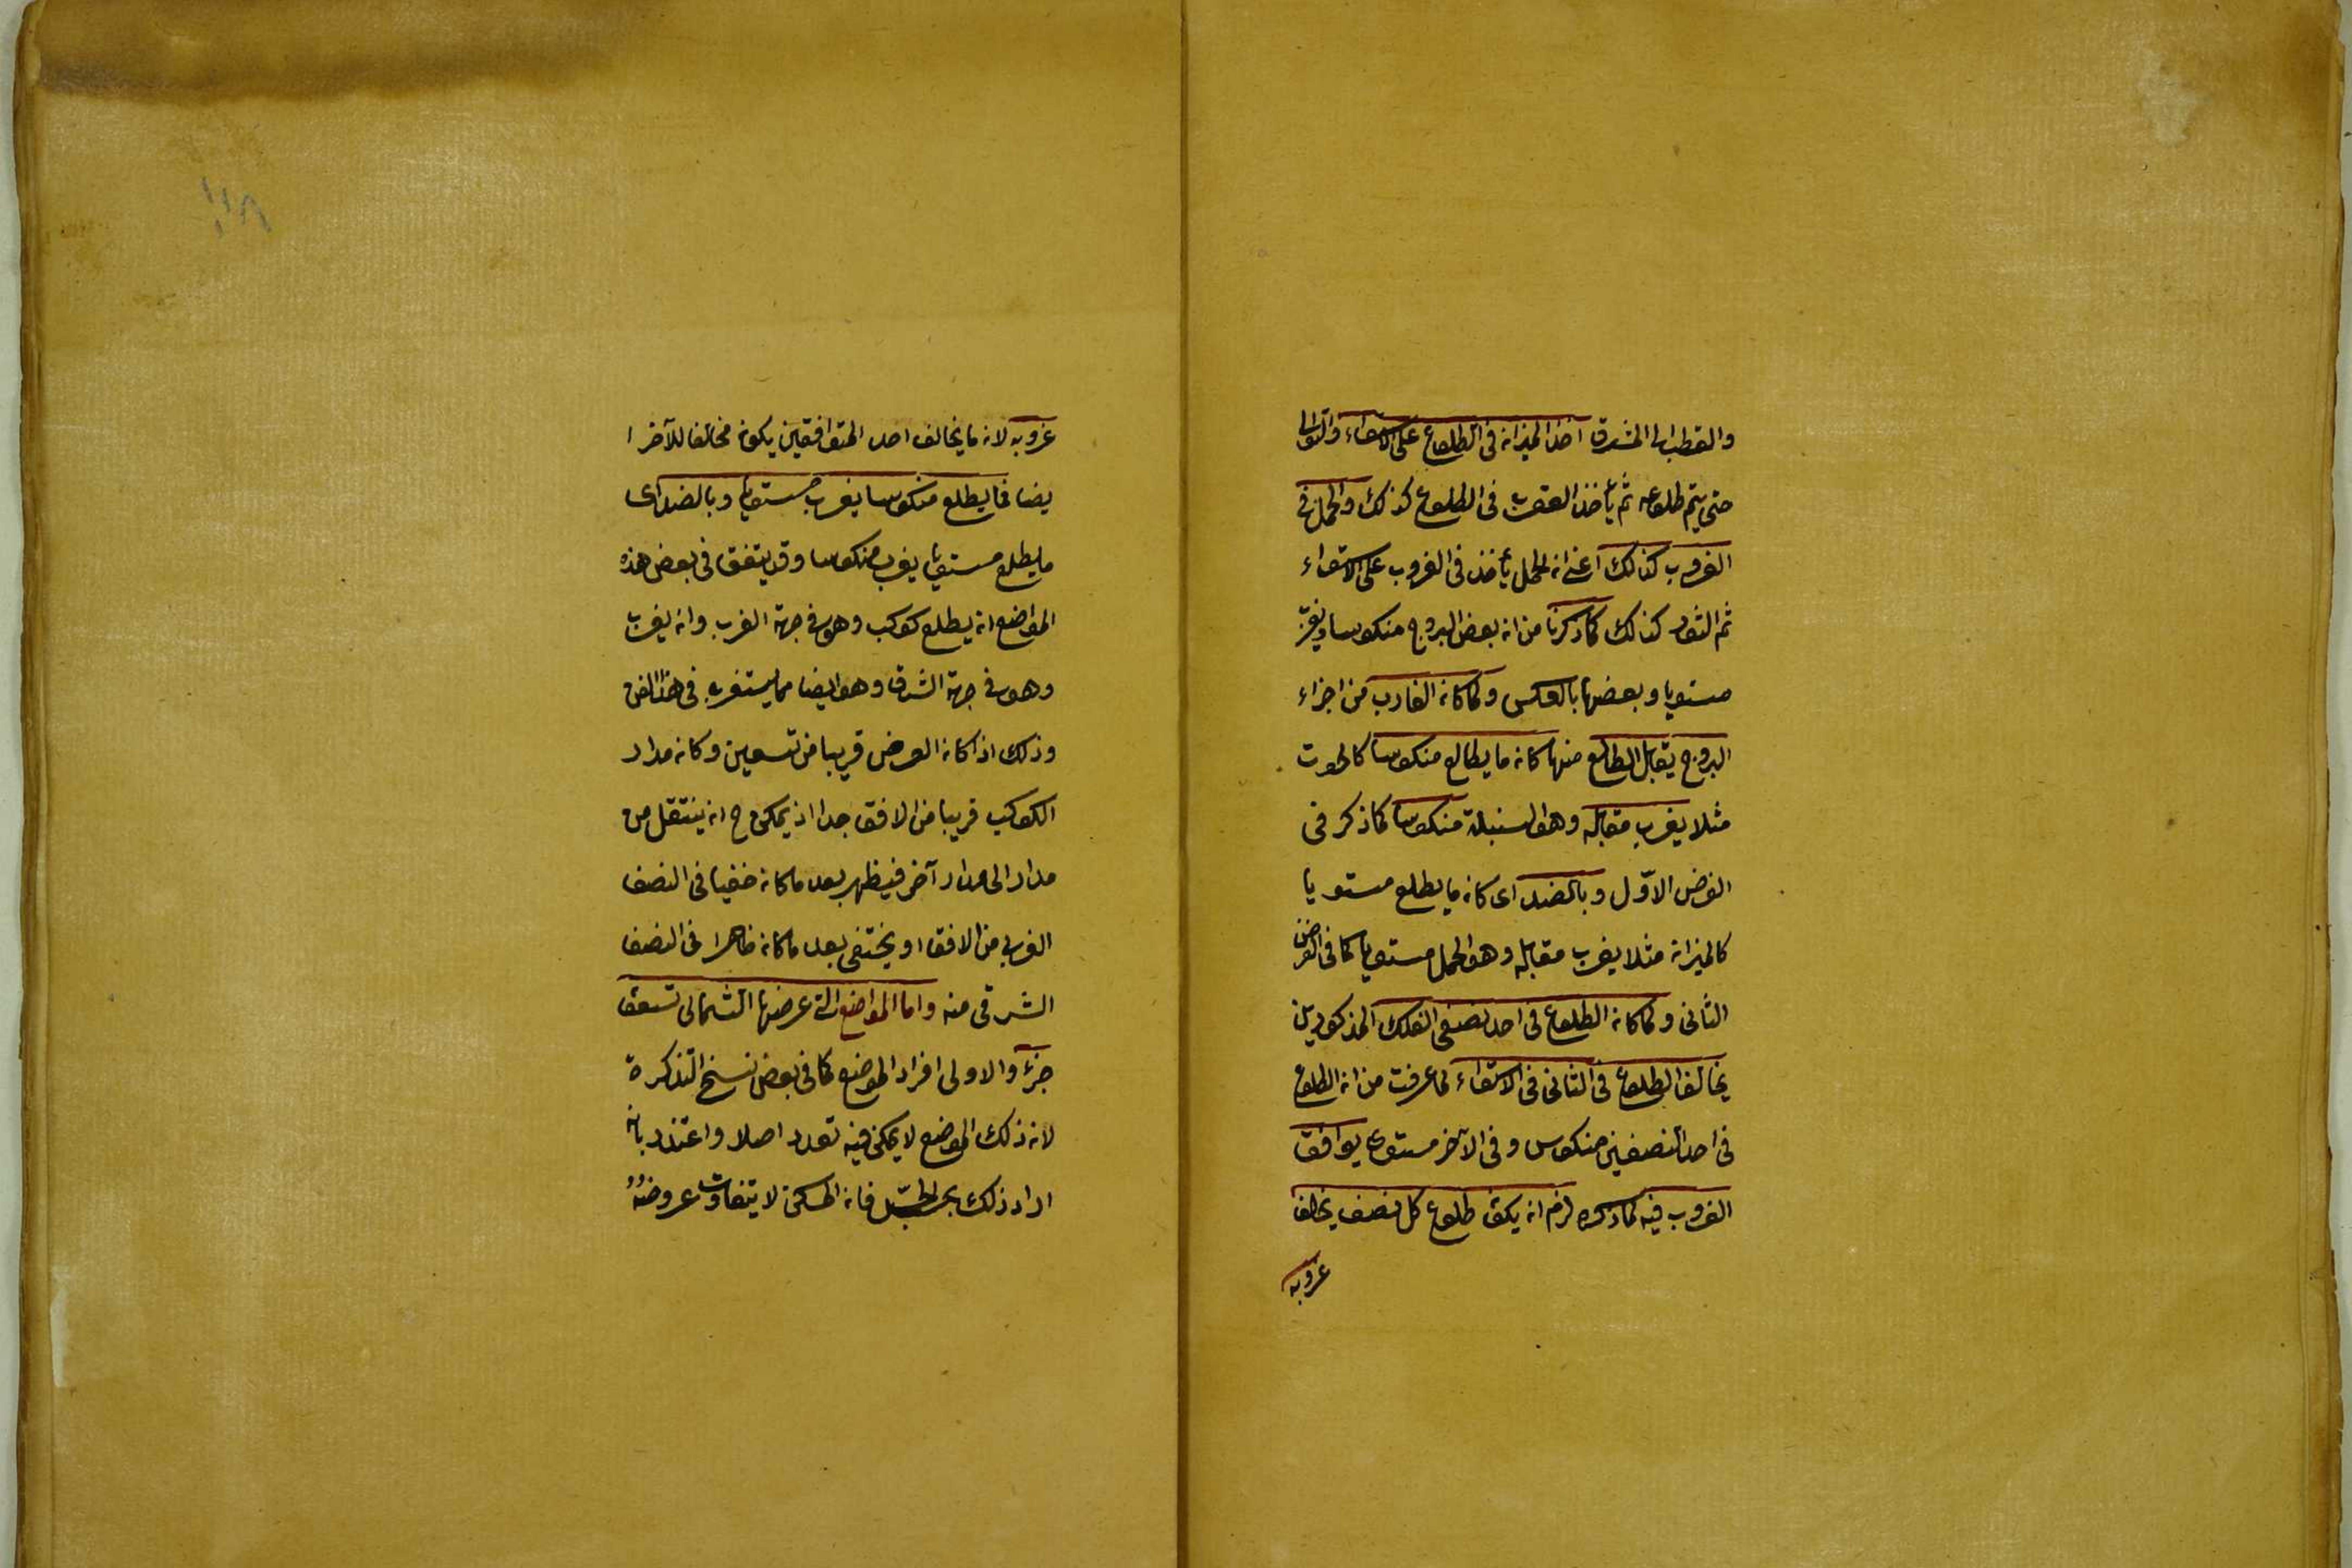 والقطب الى المشرق اخذ الميزان فى الطلوع على الاستواء والتوالى
حتى يتم طلوعه ثم يأخذ العقرب فى الطلوع كذلك والحمل فى
الغروب كذلك اعنى ان الحمل يأخذ فى الغروب على الاستواء
ثم الثور كذلك كما ذكرنا من ان بعض البروج منكوسا ويغرب
مستويا وبعضها بالعكس ولما كان الغارب من اجزاء
البروج يقابل الطالع منها كان ما يطالع منكوسا كالحوت
مثلا يغرب مقابله وهو السنبلة منكوسا كما ذكر فى
الفرض الاوّل وبالضد اى كان ما يطلع مستويا
كالميزان مثلا يغرب مقابله وهو الحمل مستويا كما فى الفرض
الثانى ولما كان الطلوع فى احد نصفى الفلك المذكورين
يخالف الطلوع فى الثانى فى الاستواء لما عرفت من ان الطلوع
فى احد النصفين منكوس وفى الآخر مستوى يوافق
الغروب فيه كما ذكره لزم ان يكون طلوع كل نصف يخالف
غروبه
غروبه لان ما يخالف احد المتوافقين يكون مخالفا للآخر ا
يضا فما يطلع منكوسا يغرب مستويا وبالضد اى
ما يطلع مستويا يغرب منكوسا وقد يتفق فى بعض هذه
المواضع ان يطلع كوكب وهو فى جهة الغرب وان يغرب
وهو فى جهة الشرق وهو ايضا مما يستغرب فى هذا الفن
وذلك اذا كان العرض قريبا من تسعين وكان مدار
الكوكب قريبا من الافق جدا اذ يمكن ح ان ينتقل من
مدار الى مدار آخر فيظهر بعد ما كان خفيا فى النصف
الغربى من الافق او يختفى بعد ما كان ظاهرا فى النصف
الشرقى منه واما المواضع التى عرضها الشمالى تسعون
جزءً والاولى افراد الموضع كما فى بعض نسخ التذكرة
لان ذلك الموضع لا يمكن فيه تعدد اصلا واعتذر بانه
اراد ذلك بحسب فان لا يتفاوت عروضه
١١٨